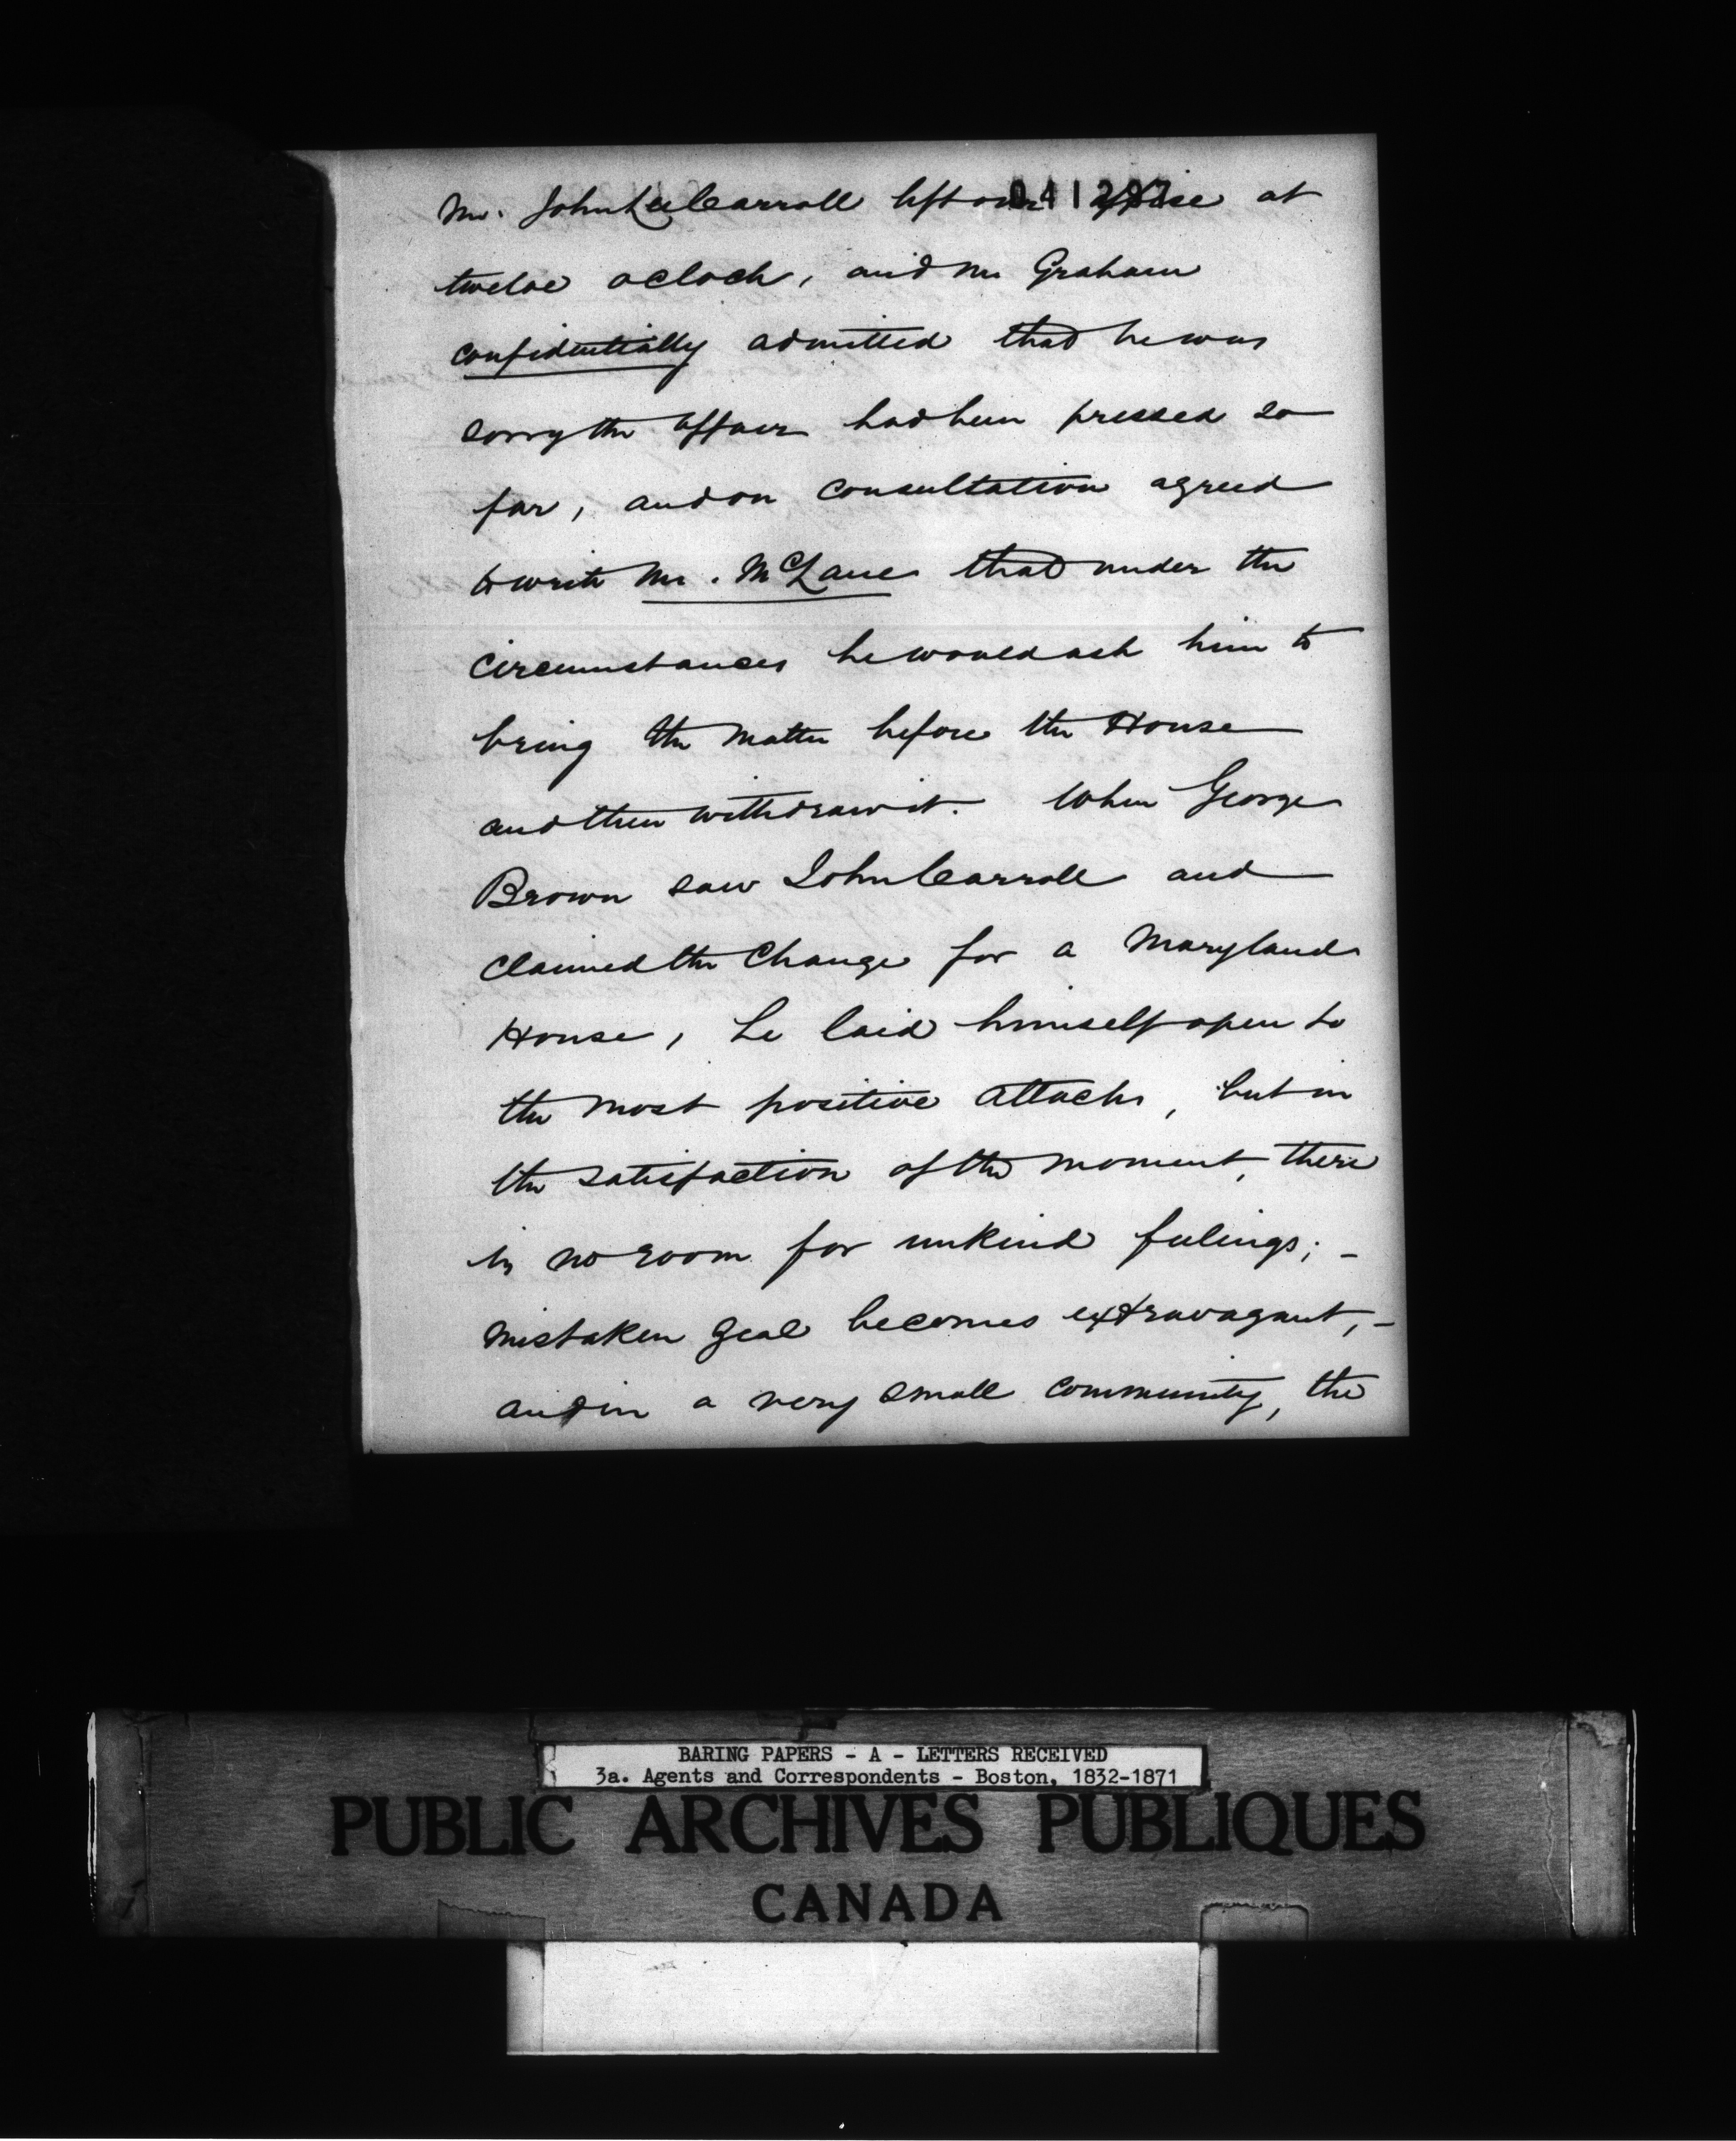 041297
Mr. John Lee Carroll left our office at
twelve oclock, and Mr Graham
confidentially admitted that he was
sorry the affair had been pressed so
far, and on consultation agreed
to write Mr. McLane that under the
circumstances he would ask him to
bring the matter before the House
and then withdraw it. When George
Brown saw John Carroll and
claimed the Change for a Maryland
House, he laid himself open to
the most positive attacks, but in
the satisfaction of the moment, there
is no room for unkind feelings; -
mistaken zeal becomes extravagant, -
and in a very small community, the
BARING PAPERS - A - LETTERS RECEIVED
3a. Agents and Correspondents - Boston, 1832-1871
PUBLIC ARCHIVES PUBLIQUES
CANADA